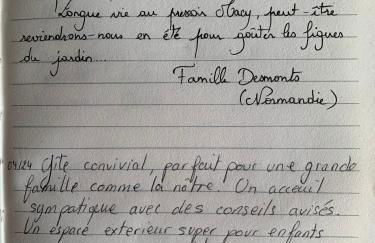 Longue vie au pressoir Macy, peut-être
reviendrons-nous en été pour goûter les figues
du jardin...
Famille Desmonts
(Normandie)
04/24 Gîte convivial, parfait pour une grande
famille comme la nôtre. Un acceuil
sympatique avec des conseils avisés.
Un espace exterieur super pour enfants